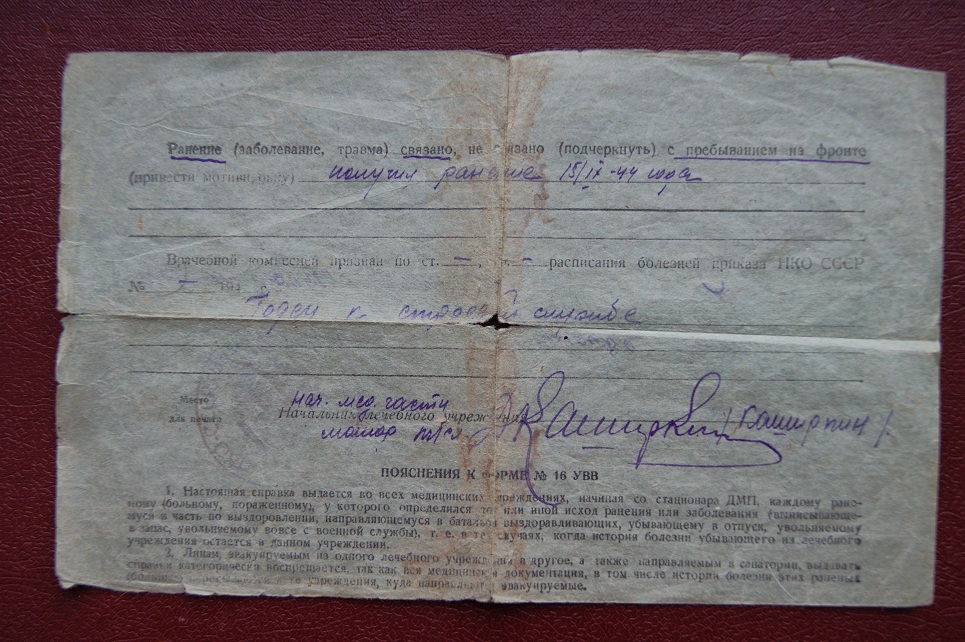 Ранение (заболевание, травма) связано, не связано (подчеркнуть) с пребыванием на фронте
(привести мотивировку) получил ранение 15/IX-44 года
Врачебной комиссией признан по ст. – , – расписания болезней приказа НКО СССР
№ – 194 г.
Годен к строевой службе
Место
для печати
нач. мед. части
Начальник лечебного учреждения
майор м/с /Каширкин/.
ПОЯСНЕНИЯ К ФОРМЕ № 16 УВВ
1. Настоящая справка выдается во всех медицинских учреждениях, начиная со стационара ДМП, каждому ране-
ному (больному, пораженному), у которого определился тот или иной исход ранения или заболевания (выписывающе-
муся в часть по выздоровлении, направляющемуся в батальон выздоравливающих, убывающему в отпуск, увольняемому
в запас, увольняемому вовсе с военной службы), т. е. в тех случаях, когда история болезни убывающего из лечебного
учреждения остается в данном учреждении.
2. Лицам, эвакуируемым из одного лечебного учреждения в другое, а также направляемым в санатории, выдавать
справки категорически воспрещается, так как вся медицинская документация, в том числе истории болезни этих раненых
(больных) пересылаются в те учреждения, куда направляются эвакуируемые.